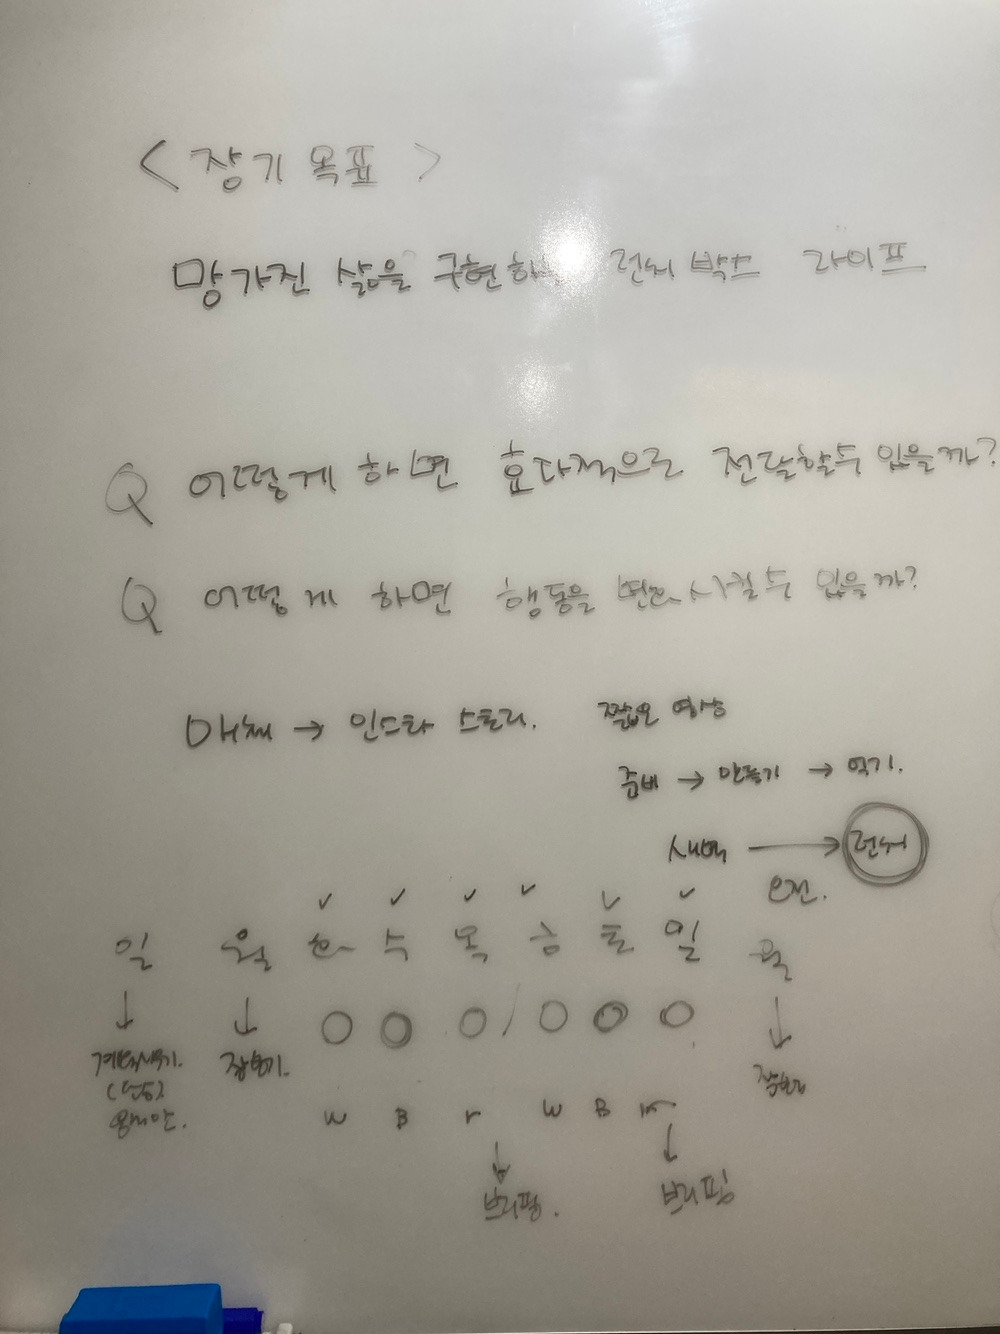 < 장기 목표 >
망가진 삶을 구현하 런치 박스 라이프
Q 어떻게 하면 효과적으로 전달할수 있을까?
Q 어떻게 하면 행동을 변화시킬수 있을까?
매체 → 인스타 스토리. 짧은 영상
준비 → 만들기 → 먹기.
새벽 → 런치
오전.
✓ ✓ ✓ ✓ ✓ ✓
일 월 화 수 목 금 토 일 월
↓ ↓ ○ ○ ○ / ○ ○ ○ ↓
계획세우기. 장보기.
W B r W B r
↓ ↓
브리핑. 브리핑